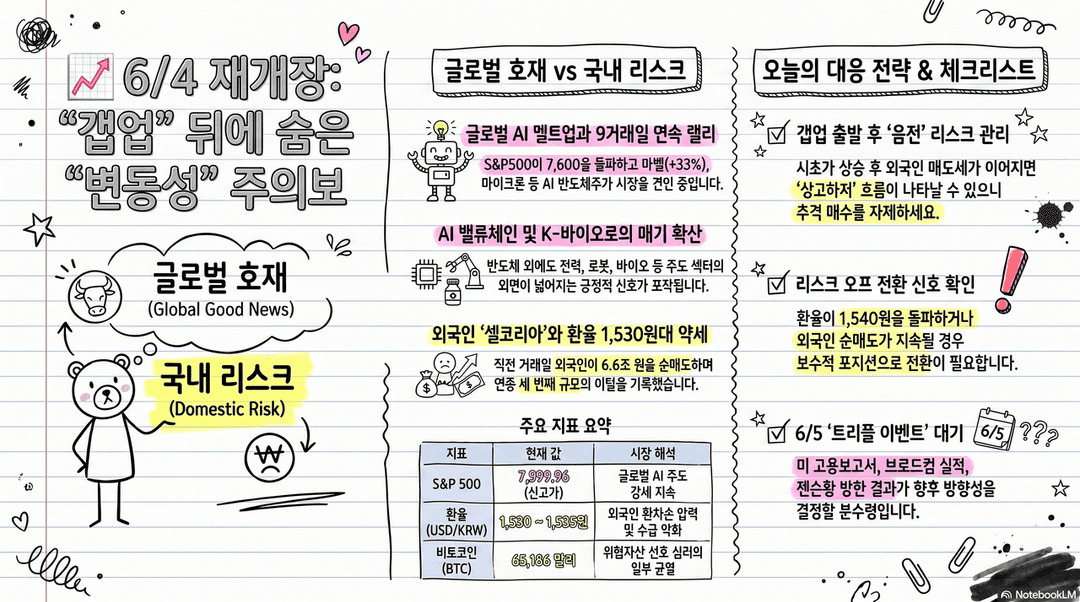 6/4 재개장:
“갭업” 뒤에 숨은
“변동성” 주의보
글로벌 호재
(Global Good News)
국내 리스크
(Domestic Risk)
₩
글로벌 호재 vs 국내 리스크
글로벌 AI 멜트업과 9거래일 연속 랠리
S&P500이 7,600을 돌파하고 마벨(+33%),
마이크론 등 AI 반도체주가 시장을 견인 중입니다.
AI 밸류체인 및 K-바이오로의 매기 확산
반도체 외에도 전력, 로봇, 바이오 등 주도 섹터의
외연이 넓어지는 긍정적 신호가 포착됩니다.
외국인 ‘셀코리아’와 환율 1,530원대 약세
직전 거래일 외국인이 6.6조 원을 순매도하며
연중 세 번째 규모의 이탈을 기록했습니다.
주요 지표 요약
지표 현재 값 시장 해석
S&P 500 (신고가) 글로벌 AI 주도
강세 지속
환율
(USD/KRW) 1,530 ~ 1,535원 외국인 환차손 압력
및 수급 악화
비트코인
(BTC) 65,186 말러 위협자산 선호 심러의
일부 균열
오늘의 대응 전략 & 체크리스트
갭업 출발 후 ‘음전’ 리스크 관리
시초가 상승 후 외국인 매도세가 이어지면
‘상고하저’ 흐름이 나타날 수 있으니
추격 매수를 자제하세요.
리스크 오프 전환 신호 확인
환율이 1,540원을 돌파하거나
외국인 순매도가 지속될 경우
보수적 포지션으로 전환이 필요합니다.
6/5 ‘트리플 이벤트’ 대기
6/5
???
미 고용보고서, 브로드컴 실적,
젠슨황 방한 결과가 향후 방향성을
결정할 분수령입니다.
NotebookLM